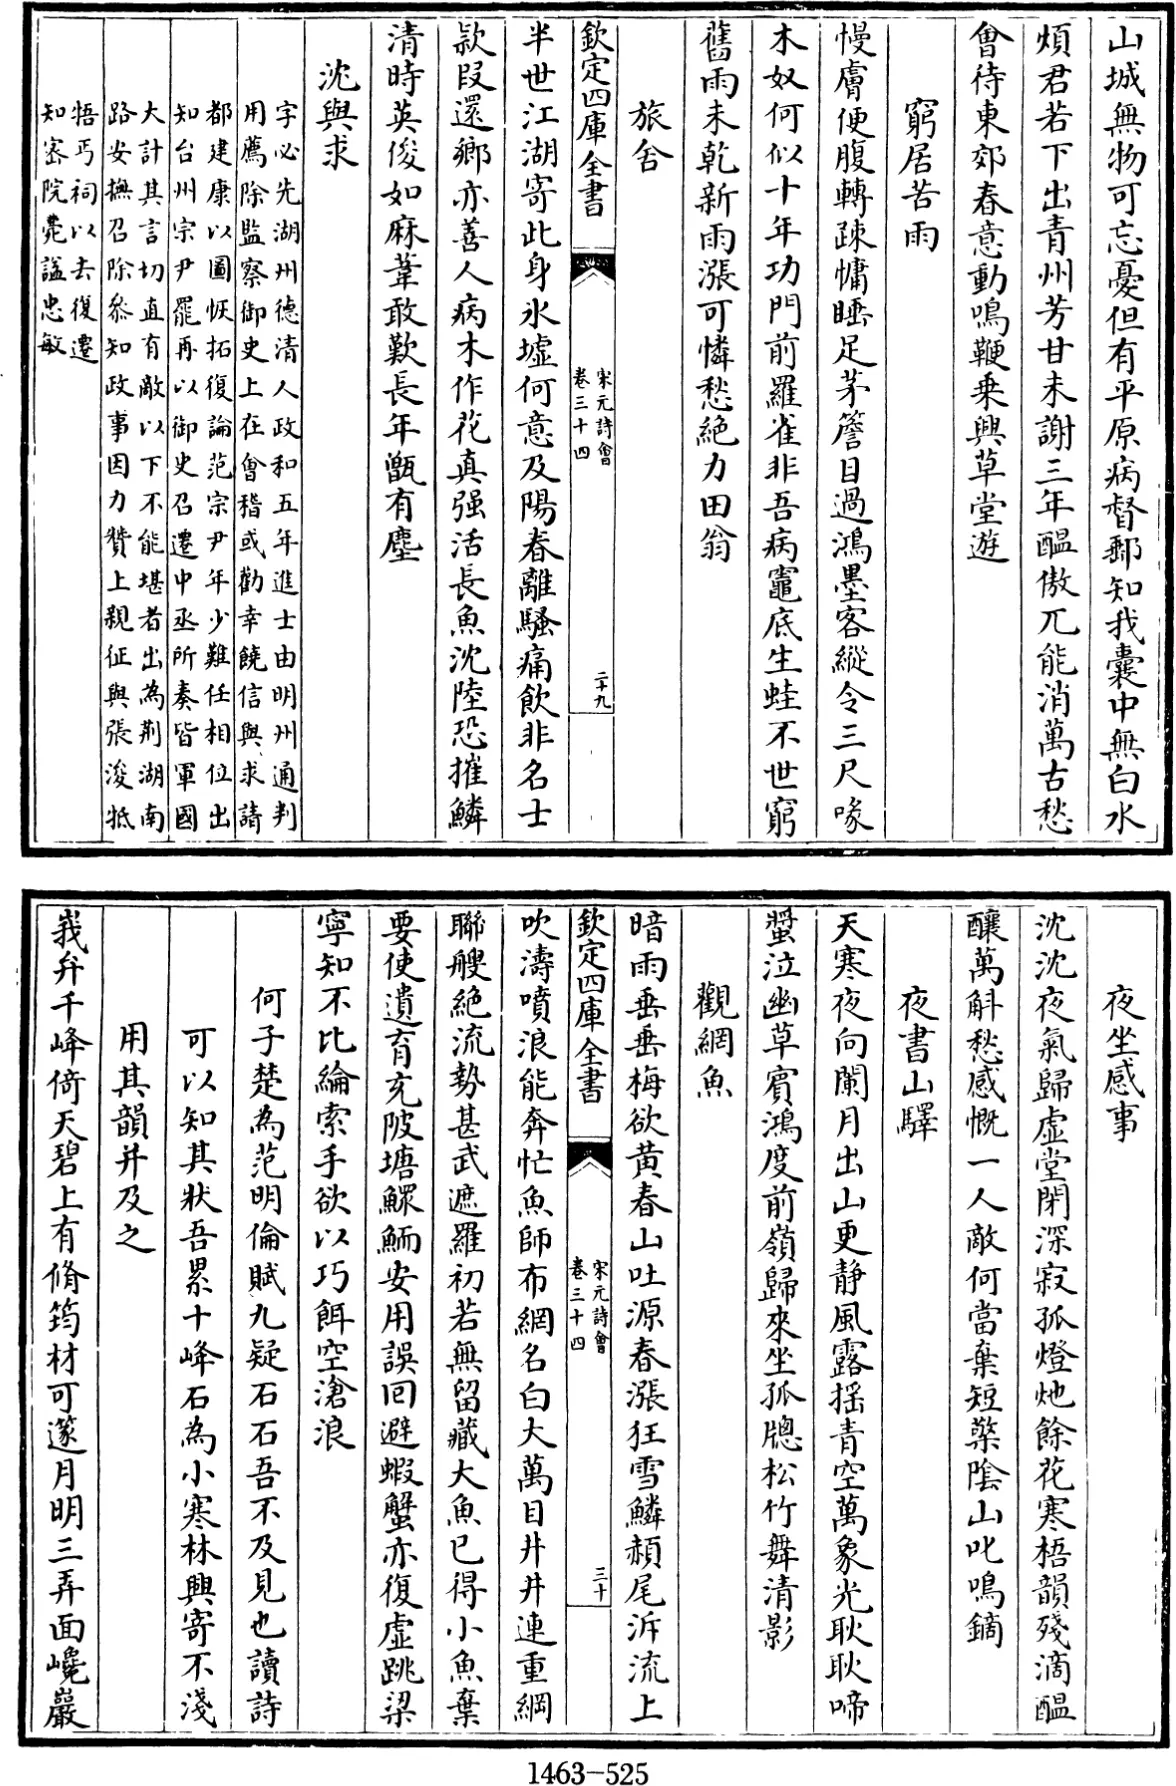 山城無物可忘憂但有平原病督郵知我囊中無白水
煩君若下出青州芳甘未謝三年醖傲兀能消萬古愁
會待東郊春意動鳴鞭乗興草堂遊
窮居苦雨
慢膚便腹轉疎慵睡足茅簷日過鴻墨客縱令三尺喙
木奴何似十年功門前羅雀非吾病竈底生蛙不世窮
舊雨未乾新雨漲可憐愁絶力田翁
旅舍
欽定四庫全書
宋元詩會
卷三十四
二十九
半世江湖寄此身氷墟何意及陽春離騷痛飲非名士
欵段還鄉亦善人病木作花真强活長魚沈陸恐摧鱗
清時英俊如麻葦敢歎長年甑有塵
沈與求
字必先湖州德清人政和五年進士由明州通判
用薦除監察御史上在會稽或勸幸饒信與求請
都建康以圖恢拓復論范宗尹年少難任相位出
知台州宗尹罷再以御史召遷中丞所奏皆軍國
大計其言切直有敵以下不能堪者出為荆湖南
路安撫召除叅知政事因力贊上親征與張浚抵
牾丐祠以去復遷
知宻院薨諡忠敏
夜坐感事
沈沈夜氣歸虚堂閉深寂孤燈灺餘花寒梧韻殘滴醖
釀萬斛愁感慨一人敵何當棄短檠陰山叱鳴鏑
夜書山驛
天寒夜向闌月出山更静風露揺青空萬象光耿耿啼
螿泣幽草賓鴻度前嶺歸來坐孤牕松竹舞清影
觀網魚
暗雨垂垂梅欲黄春山吐源春漲狂雪鱗頳尾泝流上
欽定四庫全書
宋元詩會
卷三十四
三十
吹濤噴浪能奔忙魚師布網名白大萬目井井連重綱
聯艘絶流勢甚武遮羅初若無留藏大魚已得小魚棄
要使遺育充陂塘鰥鮞安用誤回避蝦蟹亦復虚跳梁
寧知不比綸索手欲以巧餌空滄浪
何子楚為范明倫賦九疑石石吾不及見也讀詩
可以知其狀吾累十峰石為小寒林興寄不淺
用其韻并及之
我弁千峰倚天碧上有脩筠材可邃月明三弄面巉巖
1463-525